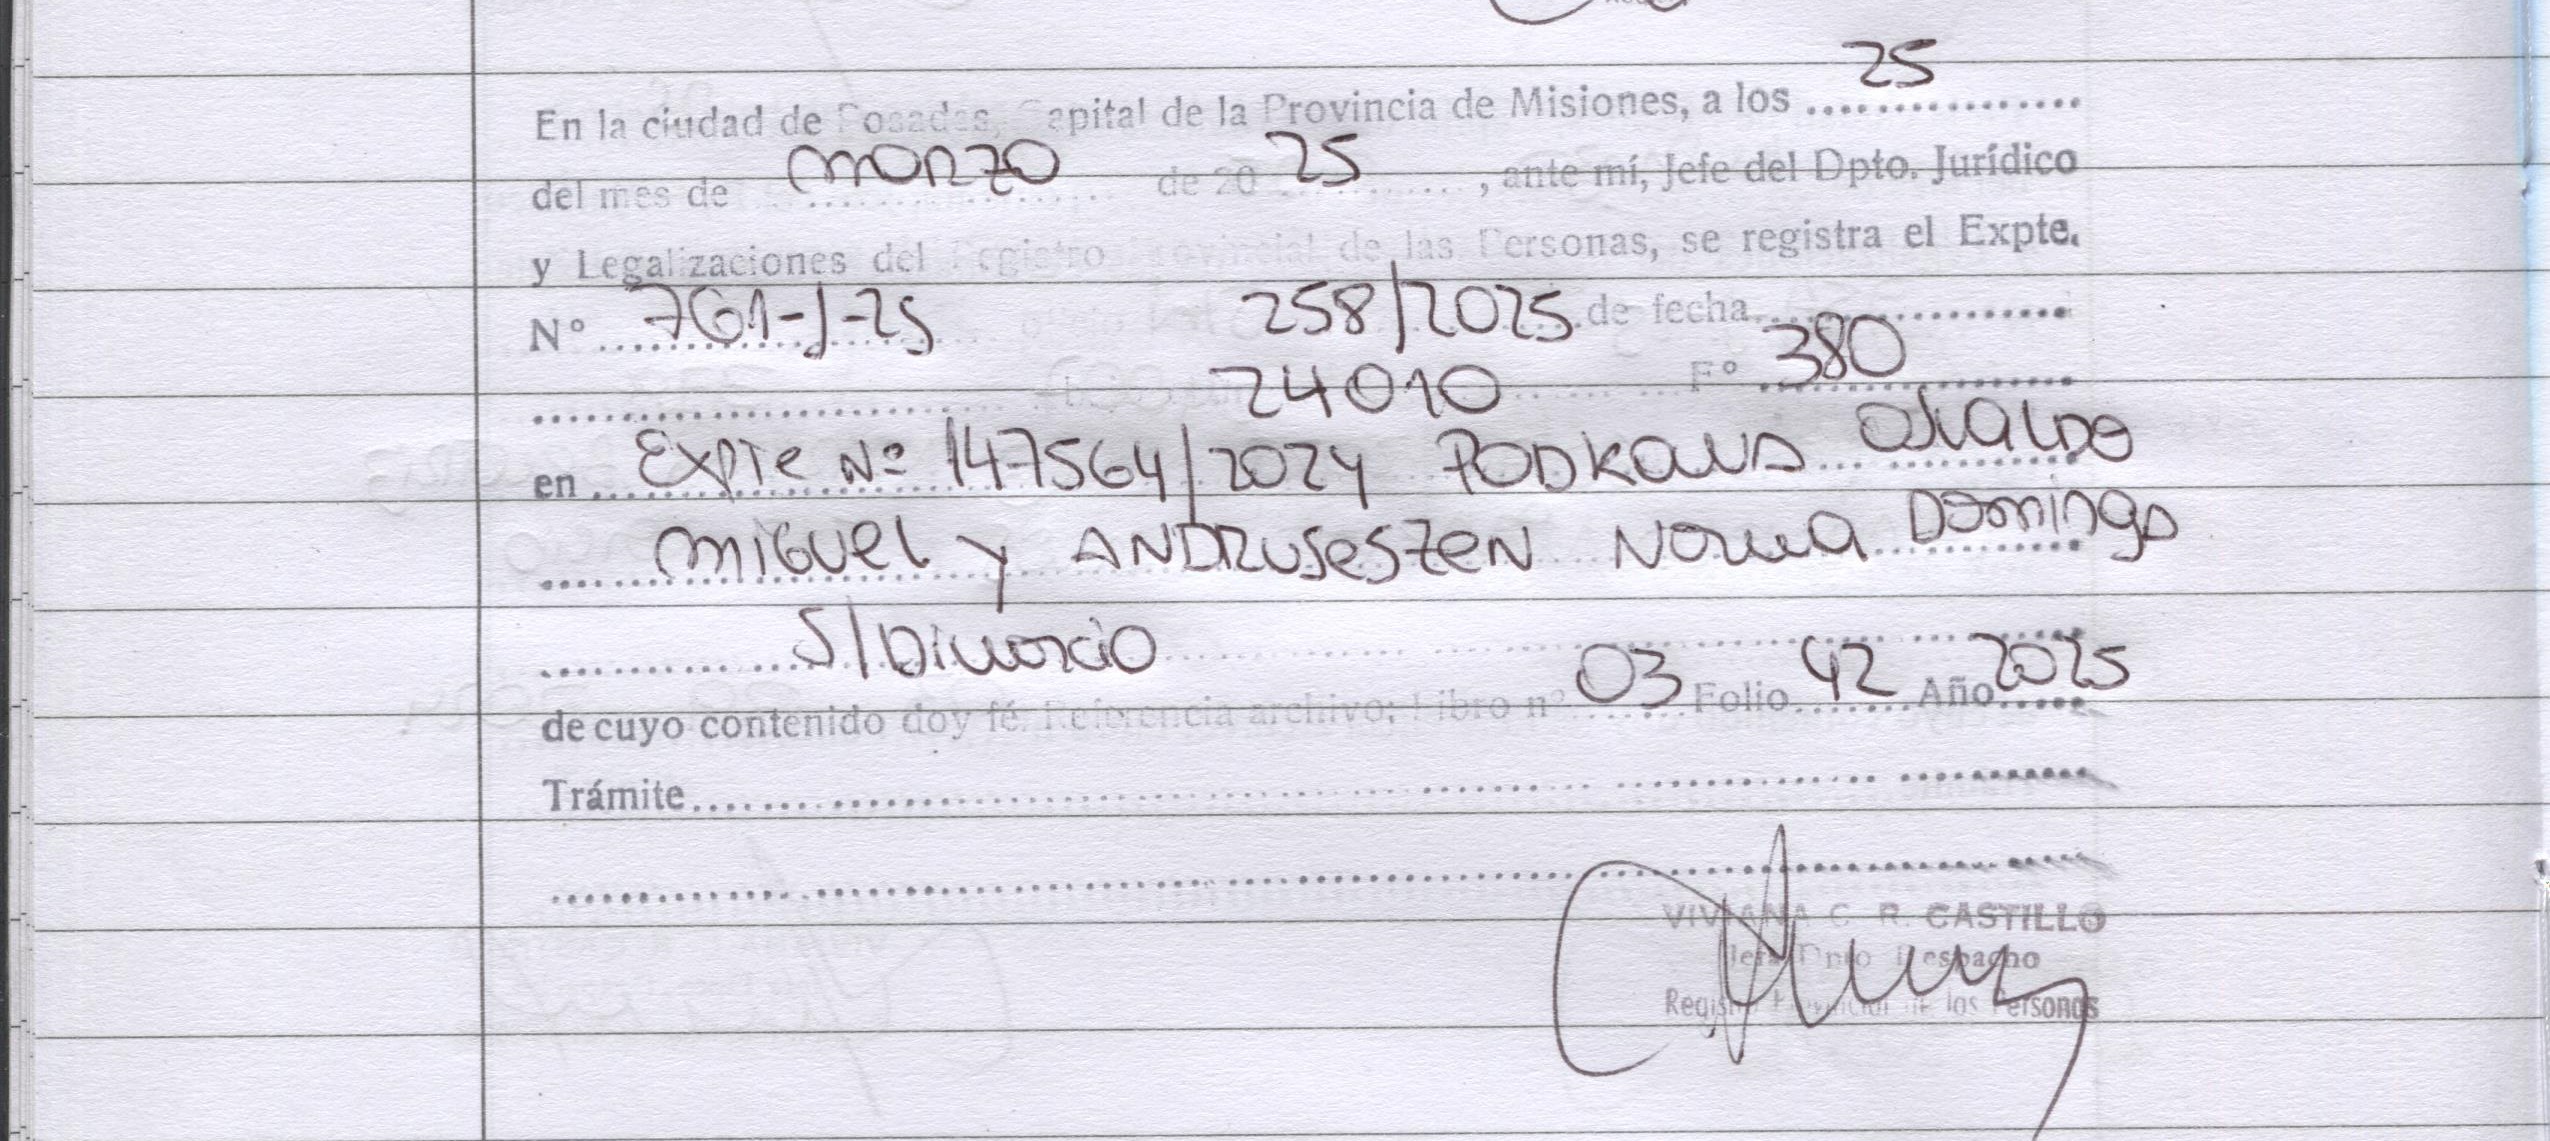 25
En la ciudad de Posadas, Capital de la Provincia de Misiones, a los ................
del mes de marzo de 20 25 , ante mí, Jefe del Dpto. Jurídico
y Legalizaciones del Registro Provincial de las Personas, se registra el Expte.
N° 761-J-25 258/2025 de fecha
24010 F° 380
en Expte Nº 147564/2024 PODKOWA OSVALDO
MIGUEL y ANDRUSESZEN NORMA Dominga
S/Divorcio
de cuyo contenido doy fé. Referencia archivo: Libro nº 03 Folio 42 Año 2025
Trámite
VIVIANA C. R. CASTILLO
Jefa Dpto Despacho
Registro Provincial de las Personas